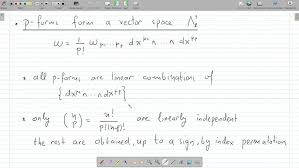 • p-forms form a vector space Λᵖ
ω = 1/p! ω_μ₁...μₚ dx^μ₁ ∧ ... ∧ dx^μₚ
• all p-forms are linear combination of
{dx^μ₁ ∧ ... ∧ dx^μₚ}
• only (n p) = n!/p!(n-p)! are linearly independent
the rest are obtained, up to a sign, by index permutation